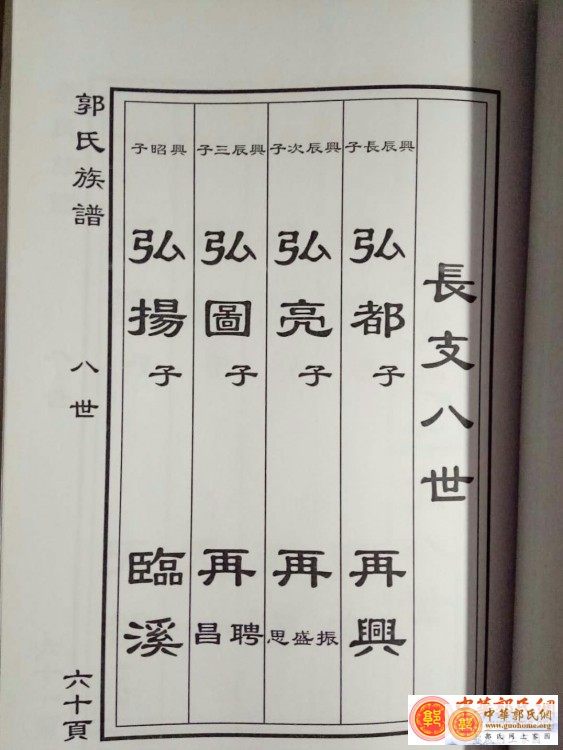 長支八世
興辰長子
弘都子
再興
興辰次子
弘亮子
再
振盛思
興辰三子
弘圖子
再
聘昌
興昭子
弘揚子
臨溪
郭氏族譜
八世
六十頁
中華郭氏網
www.guohome.org
郭氏网上家园